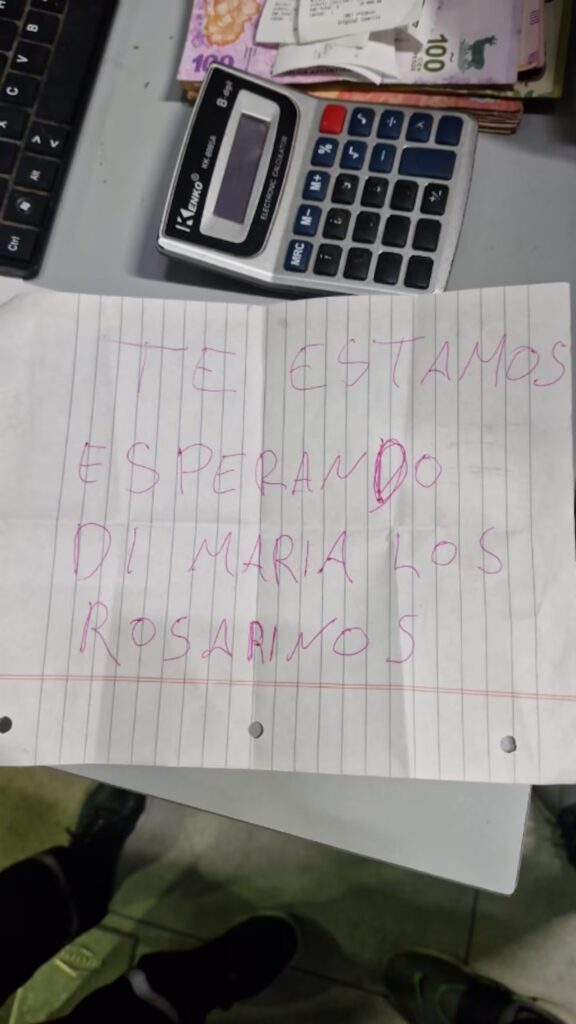 100
100
8-digit
KENKO®
KK-800A
ELECTRONIC CALCULATOR
%
√
÷
×
M+
−
M−
+/-
MRC
C
V
B
Alt
Ctrl
TE ESTAMOS
ESPERANDO
DI MARIA LOS
ROSARINOS